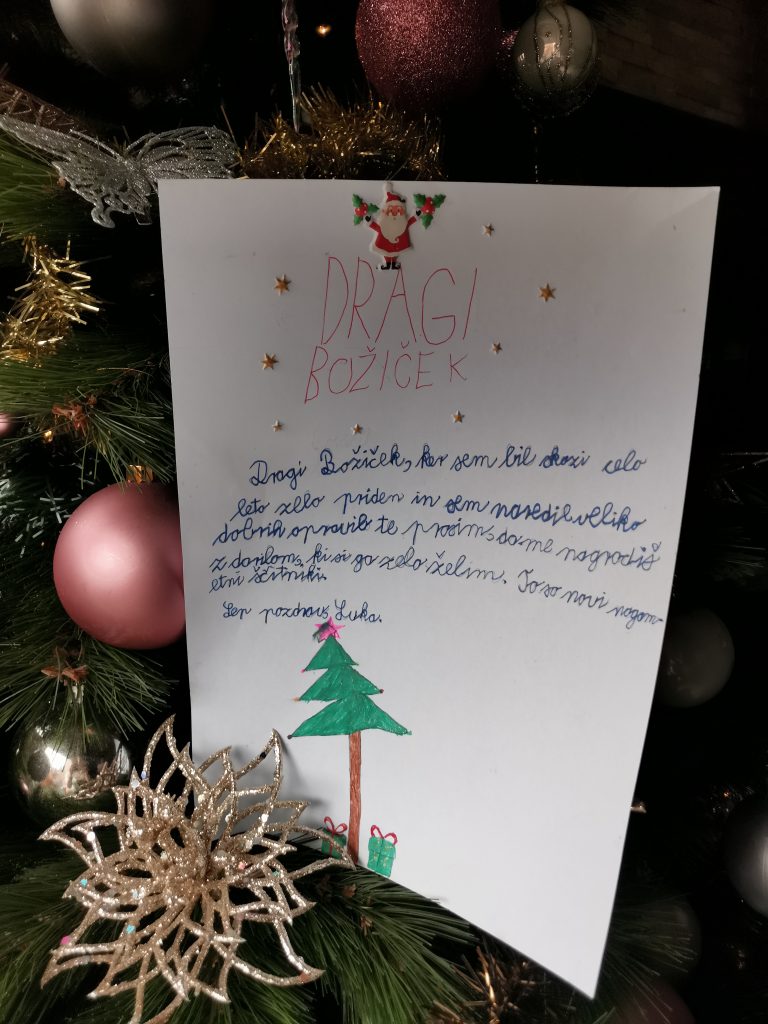 DRAGI
BOŽIČEK
Dragi Božiček, ker sem bil skozi celo
leto zelo priden in sem naredil veliko
dobrih opravil te prosim, da me nagradiš
z darilom, ki si ga zelo želim. To so novi nogom-
etni ščitniki.
Lep pozdrav, Luka.